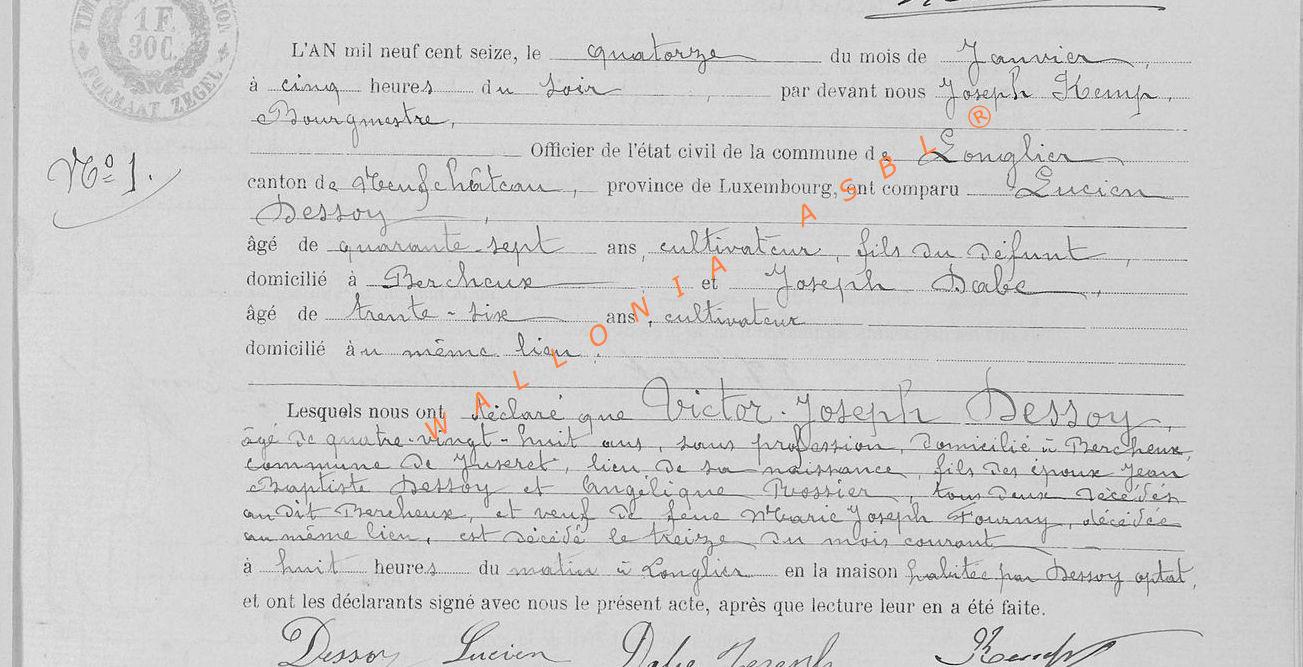 1 F.
30C.
FORMAAT ZEGEL
L'AN mil neuf cent seize, le quatorze du mois de Janvier,
à cinq heures du soir, par devant nous Joseph Kemp,
Bourgmestre,
Officier de l'état civil de la commune de Longlier
N° 1.
canton de Neufchâteau, province de Luxembourg, ont comparu Lucien
Dessoy,
âgé de quarante-sept ans, cultivateur, fils du défunt,
domicilié à Bercheux et Joseph Dabe,
âgé de trente-six ans, cultivateur
domicilié au même lieu.
Lesquels nous ont déclaré que Victor-Joseph Dessoy,
âgé de quatre-vingt-huit ans, sans profession, domicilié à Bercheux,
commune de Juseret, lieu de sa naissance, fils des époux Jean
Baptiste Dessoy et Angélique Rossier, tous deux décédés
au dit Bercheux, et veuf de feue Marie Joseph Fourny, décédée
au même lieu, est décédé le treize du mois courant
à huit heures du matin à Longlier en la maison habitée par Dessoy optat,
et ont les déclarants signé avec nous le présent acte, après que lecture leur en a été faite.
Dessoy Lucien Dabe Joseph Kemp
WALLONIA ASBL ®